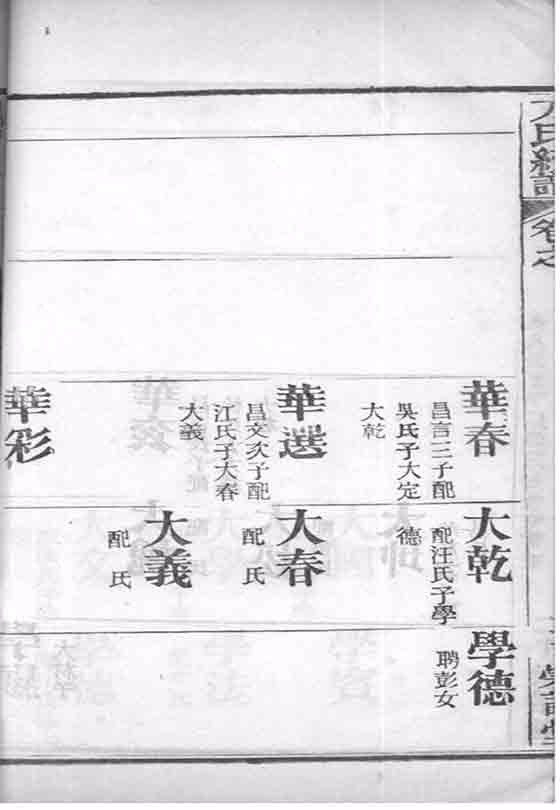 卷之
華春
昌言三子配
吳氏子大定
大乾
華選
昌文次子配
江氏子大春
大義
華彩
大乾
配汪氏子學
德
大春
配 氏
大義
配 氏
學德
聘彭女